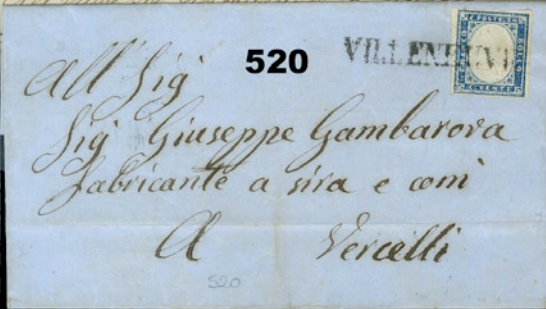 520
VILLENEUVE
C. POSTE
BOLLO
C. VENTI
All' Sig
Sig Giuseppe Gambarova
fabricante a sira e comi
A Vercelli
520